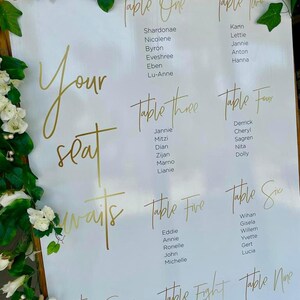 Your
seat
awaits
Table One
Shardonae
Nicolene
Byron
Eveshree
Eben
Lu-Anne
Table Two
Karin
Lettie
Jannie
Anton
Hanna
Table Three
Jannie
Mitzi
Dian
Zijan
Marno
Lianie
Table Four
Derrick
Cheryl
Sagren
Nita
Dolly
Table Five
Eddie
Annie
Ronelle
John
Michelle
Table Six
Wihan
Gisela
Willem
Yvette
Gert
Lucie
Table Eight
Table Nine